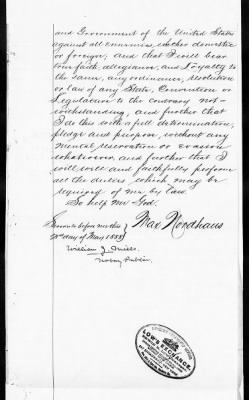 and Government of the United States
against all enemies, whether domestic
or foreign; and that I will bear
true faith, allegiance and loyalty to
the same, any ordinance, resolution
or law of any State, Convention or
Legislature to the contrary not-
withstanding, and further that
I do this with a full determination,
pledge and purpose, without any
mental reservation or evasion
whatsoever, and further that I
will well and faithfully perform
all the duties which may be
required of me by law.
So help me God.
Sworn to before me this } Max Nordhaus
day of May 1888
William J. Mills.
Notary Public.
LOWE EXCHANGE